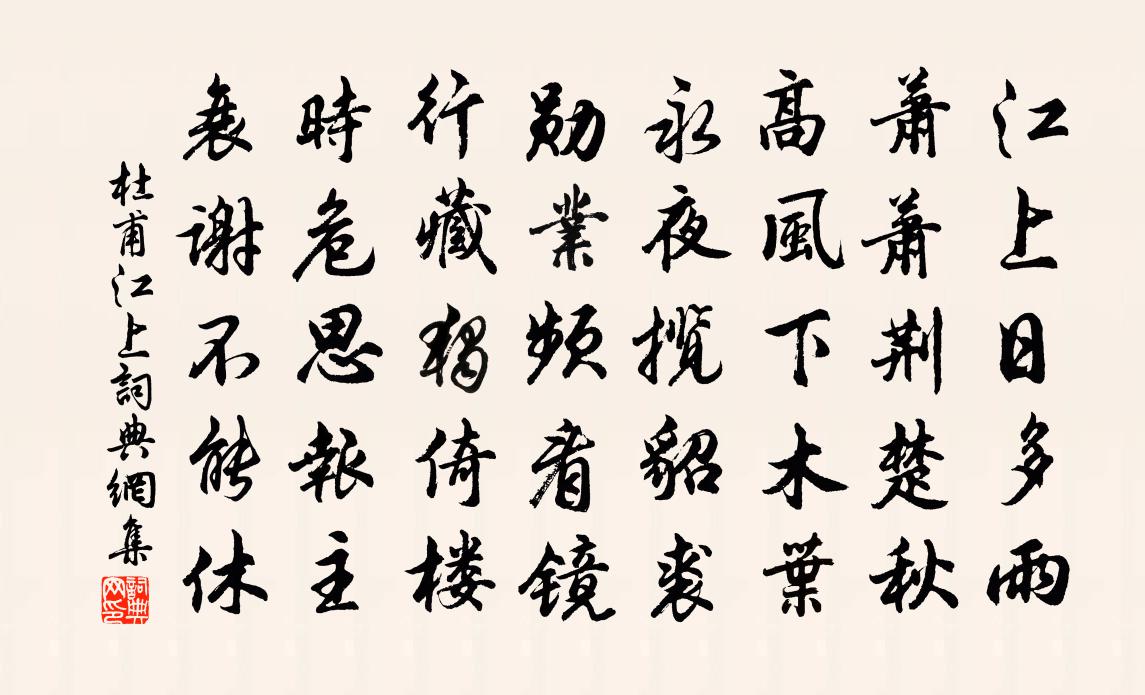 江上日多雨
蕭蕭荆楚秋
高風下木葉
永夜揽貂裘
勋業頻看镜
行藏獨倚楼
時危思報主
衰謝不能休
杜甫江上詞典網集
詞典网印